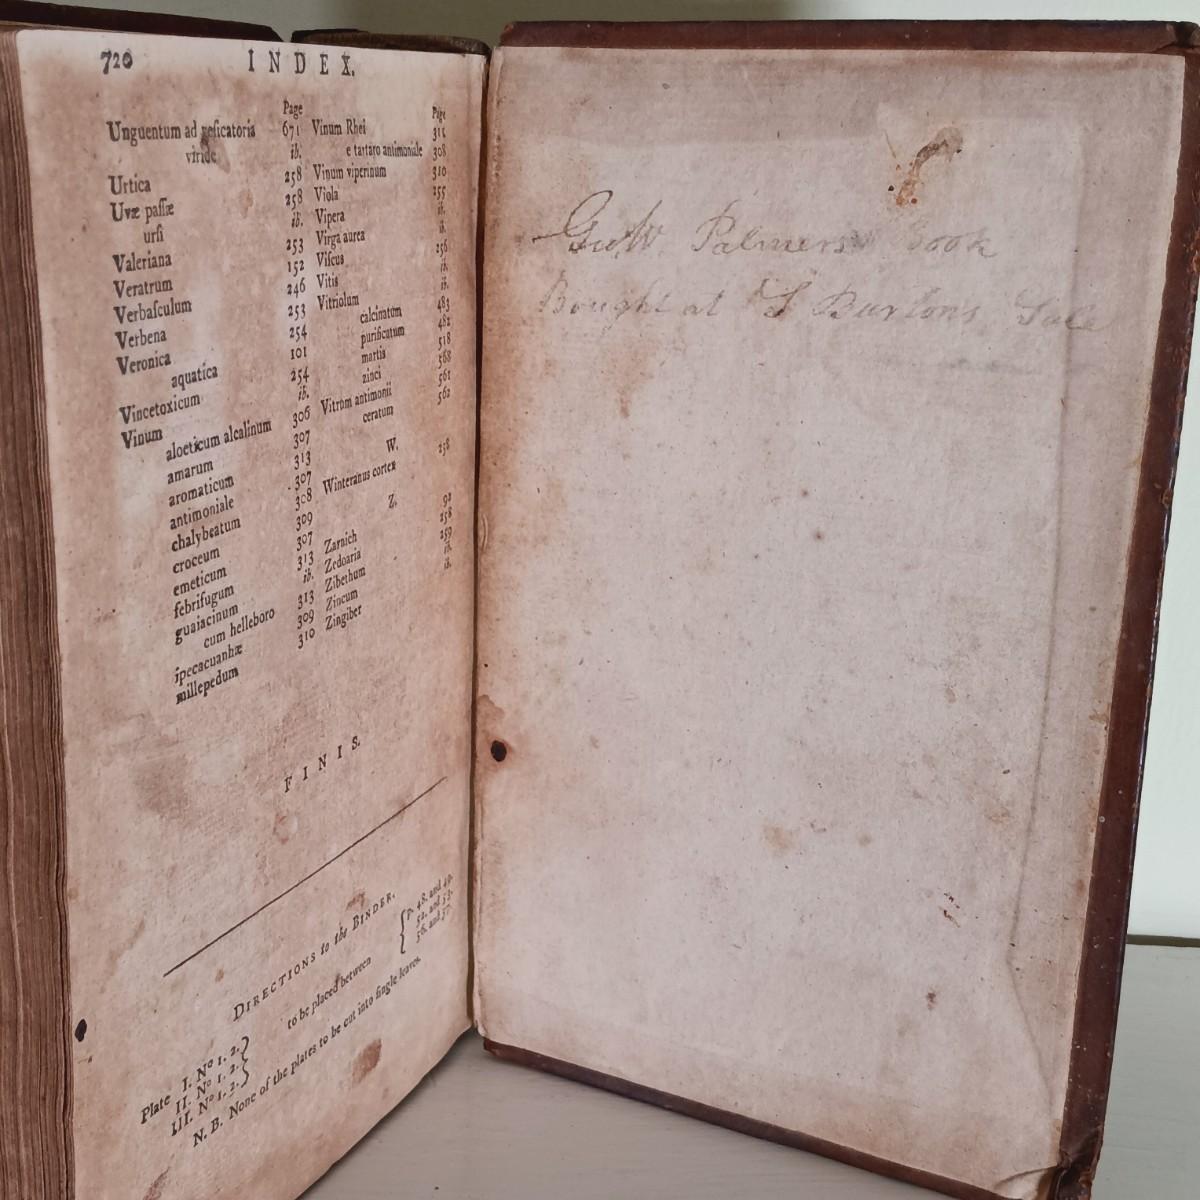 720 INDEX.
Page
Unguentum ad vesicatoria 671
viride ib.
Urtica 258
Uvæ paſſæ 258
urſi ib.
Valeriana 253
Veratrum 152
Verbaſculum 246
Verbena 253
Veronica 254
aquatica 101
Vincetoxicum 254
Vinum ib.
aloeticum alcalinum 306
amarum 307
aromaticum 313
antimoniale 307
chalybeatum 308
croceum 309
emeticum 307
febrifugum 313
guaiacinum ib.
cum helleboro 313
ipecacuanhæ 309
millepedum 310
Page
Vinum Rhei 311
e tartaro antimoniale 308
Vinum viperinum 310
Viola 255
Vipera ib.
Virga aurea ib.
Viſcus 256
Vitis ib.
Vitriolum ib.
calcinatum 483
purificatum 482
martis 518
zinci 568
Vitrum antimonii 561
ceratum 562
W.
Winteranus cortex 258
Z.
Zarnich 92
Zedoaria 258
Zibethum 259
Zincum ib.
Zingiber ib.
FINIS.
DIRECTIONS to the BINDER.
Plate I. No 1. 2. } to be placed between { p. 48. and 49.
II. No 1. 2. 52. and 53.
III. No 1. 2. 56. and 57.
N. B. None of the plates to be cut into ſingle leaves.
Palmers Book
Bought at S Burtons Sale